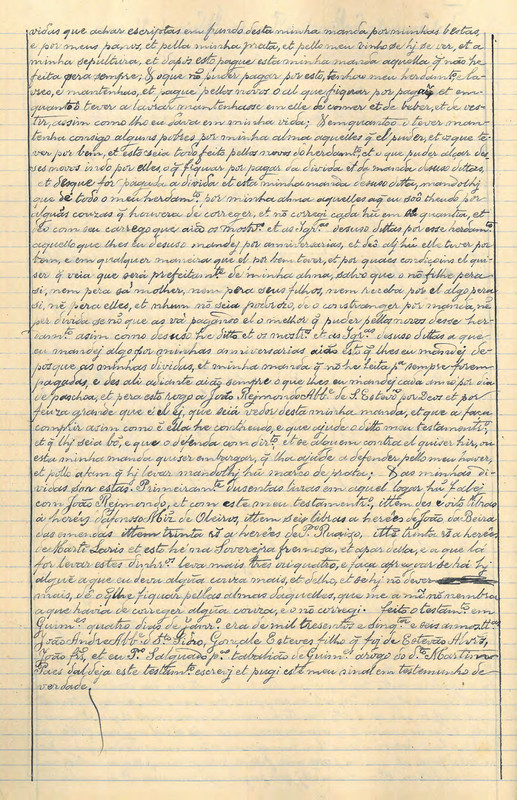 vidas que achar escriptas em fundo desta minha manda por minhas bestas,
e por meus panos, et pella minha prata, et pello meu vinho se hj se ver, et a
minha sepultura, et dapois esto pague esta minha manda aquella q̃ não he
feita pera sempre; E o que nõ puder pagar por esto, tenha o meu herdamto e la-
vreo, e mantenhao, et pague pellos novos o al que figuar por pagar et em
quanto o tever a lavrar mantenhasse em elle de comer et de beber, et de ves-
tir, assim como lho eu dava em minha vida; E em quanto o tever man-
tenha consigo alguns pobres por minha alma aquelles q̃ el puder, et os que te-
ver por bem, et esto seia todo feito pellos novos do herdamto, et o que puder alçar des-
ses novos indo por elles o q̃ figuar por pagar da divida et da manda desuso dittas,
et desque for pagada a divida et esta minha manda desuso ditta, mandolhj
que dê todo o meu herdamto, por minha alma aquelles a q̃ eu soõ theudo por
alguãs couzas q̃ houvera de correger, et nõ corregi cada hũ em quantia, et
com seu carrego que aião os mostros et as Igras desuso dittas por esse herdamto
aquello que lhes eu desuso mandej por anniversarias, et deo al hu elle tever por
bem, e em qualquer maneira que el por bem tever, et por quaes condiçois el qui-
ser q̃ veia que será prefeitamte de minha alma, salvo que o nõ filhe pera
si, nem pera sa molher, nem pera seus filhos, nem receba por el algo pera
si, nẽ pera elles, et nhum nõ seia poderozo, de o constranger por manda, nẽ
per divida se nõ que as vá pagando el o melhor q̃ puder pellos novos desse her-
damto asim como desuso he ditto et os mostros et as Igras desuso dittas a que
eu mandej algo por minhas anniversarias aião esto q̃ lhes eu mandej de
pos que as minhas dividas, et minha manda q̃ nõ he feita pa sempre forem
pagadas, e des ali adiante aião sempre o que lhes eu mandej cada ano por dia
de paschoa, et pera esto rogo a João Reijmondo Abbe de S. Estevão por Deos et por
feuza grande que ei el ej, que seia vedor desta minha manda, et que a faça
comprir asim como ẽ ella he contheudo, e que ajude o ditto meu testamentro,
et q̃ lhj seia bõ, e que o defenda com dirto, et se alguem contra el quiser hir, ou
esta minha manda quiser embargar, q̃ lha ajude a defender pello meu haver,
et pello afam q̃ hj levar mandolhj hũ marco de prata. E as minhas di-
vidas son estas: Primeiramte dusentas livras em aquel logar hu falej
com João Reijmondo, et com este meu testamentro, ittem des e oito libras
á heréis de Afonso Miz de Oleiros, ittem seis libras a herées de João da Beira
das amendas ittem trinta rs a herées de Po Ruaizo, ittem trinta rs a herées
de Marti Laris et esto hé na Sovereira fremosa, et apar della, e a que lá
for levar estes dinhros leva mais tres ou quatro, e faça apregoar se há hj
alguẽ a que eu deva algũa couza mais, et délho, et se hj nõ dever
mais, dê o q̃ lhe figuar pellas almas daquelles, que me a mĩ nõ membra
a que havia de correger algũa couza, e o nõ corregi. feito o testamto em
Guimes quatro dias de janro era de mil tresentos e sinqta e seis annos ttas
João Andre Abbe de Sta Fino, Gonçale Esteves filho q̃ foi de Estevão Alviz,
João frs, et eu Po Salguado po tabalião de Guimes arogo do do Martim
Paes daldeja este testamto escrevj et pugi este meu sinal em testemunho de
verdade